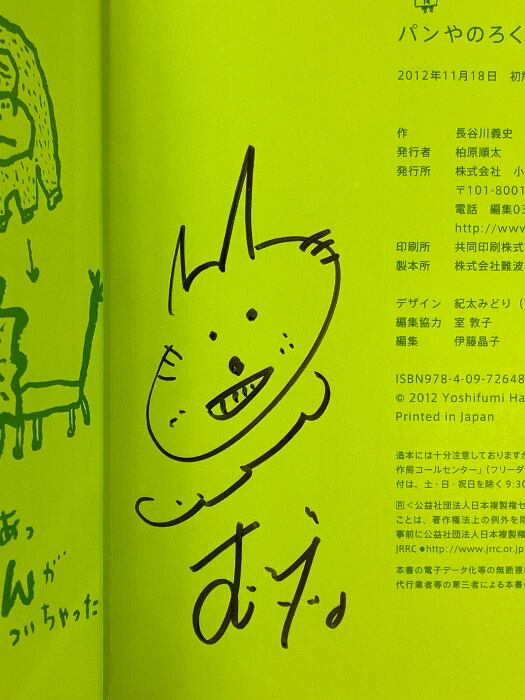 パンやのろく
2012年11月18日 初
作 長谷川義史
発行者 柏原順太
発行所 株式会社 小
〒101-8001
電話 編集03
http://www
印刷所 共同印刷株式
製本所 株式会社難波
デザイン 紀太みどり(
編集協力 室 敦子
編集 伊藤晶子
ISBN978-4-09-72648
© 2012 Yoshifumi Ha
Printed in Japan
造本には十分注意しておりますが
作局コールセンター」(フリーダ
付は、土・日・祝日を除く9:30
<公益社団法人日本複製権セ
ことは、著作権法上の例外を除
事前に公益社団法人日本複製権
JRRC●http://www.jrrc.or.jp
本書の電子データ化等の無断複
代行業者等の第三者による本書の
あっ
んが
ついちゃった